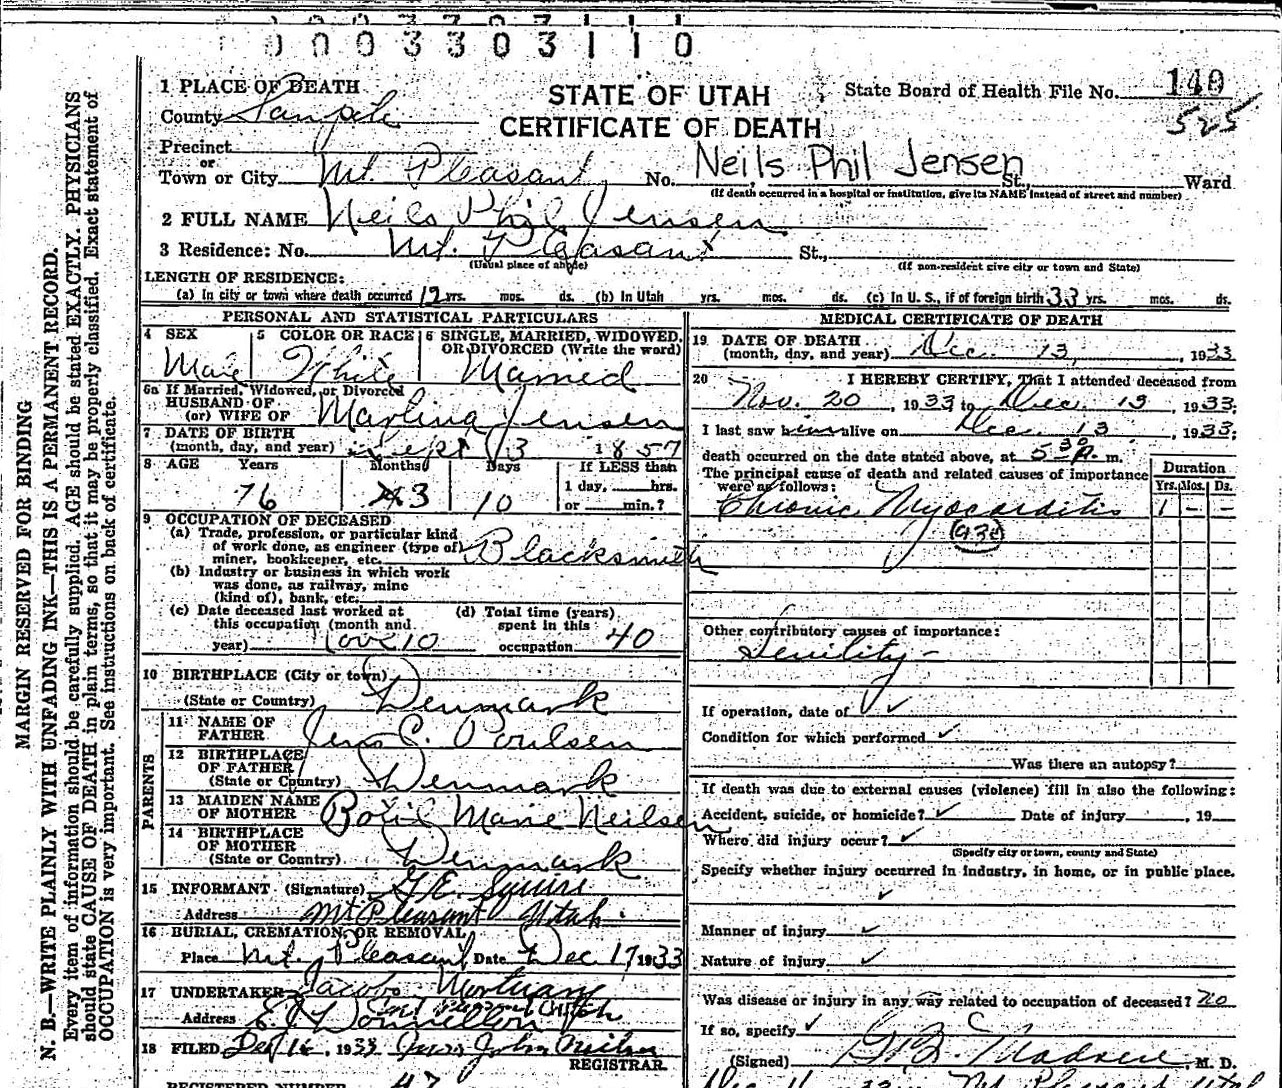 0003303110
1 PLACE OF DEATH
STATE OF UTAH
State Board of Health File No. 140
County Sanpete
CERTIFICATE OF DEATH
525
Precinct
or
Town or City Mt. Pleasant, No. Neils Phil Jensen St., Ward
(If death occurred in a hospital or institution, give its NAME instead of street and number)
2 FULL NAME Neils Phil Jensen
3 Residence: No. Mt. Pleasant St.,
(Usual place of abode) (If non-resident give city or town and State)
LENGTH OF RESIDENCE:
(a) In city or town where death occurred yrs. mos. ds. (b) In Utah yrs. mos. ds. (c) In U. S., if of foreign birth 33 yrs. mos. ds.
PERSONAL AND STATISTICAL PARTICULARS
4 SEX Male
5 COLOR OR RACE White
6 SINGLE, MARRIED, WIDOWED, OR DIVORCED (Write the word)
Married
6a If Married, Widowed, or Divorced
HUSBAND OF
(or) WIFE OF Marlina Jensen
7 DATE OF BIRTH
(month, day, and year) Sept 3 1857
8 AGE Years Months Days If LESS than
76 3 10 1 day, hrs.
or min.?
9 OCCUPATION OF DECEASED
(a) Trade, profession, or particular kind
of work done, as engineer (type of)
miner, bookkeeper, etc. Blacksmith
(b) Industry or business in which work
was done, as railway, mine
(kind of), bank, etc.
(c) Date deceased last worked at
this occupation (month and
year)
(d) Total time (years)
spent in this
occupation 40
10 BIRTHPLACE (City or town)
(State or Country) Denmark
PARENTS
11 NAME OF
FATHER Jens C. Poulsen
12 BIRTHPLACE
OF FATHER
(State or Country) Denmark
13 MAIDEN NAME
OF MOTHER Botil Marie Neilsen
14 BIRTHPLACE
OF MOTHER
(State or Country) Denmark
15 INFORMANT (Signature) G. E. Squire
Address Mt Pleasant Utah
16 BURIAL, CREMATION, OR REMOVAL
Place Mt. Pleasant Date Dec 17 1933
17 UNDERTAKER Jacobs Mortuary
Address
18 FILED Dec 16, 1933
REGISTRAR.
REGISTERED NUMBER 47
MEDICAL CERTIFICATE OF DEATH
19 DATE OF DEATH
(month, day, and year) Dec. 13, 1933
20 I HEREBY CERTIFY, That I attended deceased from
Nov. 20, 1933 to Dec. 13, 1933;
I last saw him alive on Dec. 13, 1933;
death occurred on the date stated above, at 5 30 p. m.
The principal cause of death and related causes of importance
were as follows:
Duration
Yrs. Mos. Ds.
Chronic Myocarditis 1 - -
Other contributory causes of importance:
Senility -
If operation, date of
Condition for which performed
Was there an autopsy?
If death was due to external causes (violence) fill in also the following:
Accident, suicide, or homicide? Date of injury , 19
Where did injury occur?
(Specify city or town, county and State)
Specify whether injury occurred in industry, in home, or in public place.
Manner of injury
Nature of injury
Was disease or injury in any way related to occupation of deceased? No
If so, specify
(Signed) Madsen M. D.
MARGIN RESERVED FOR BINDING
N. B.—WRITE PLAINLY WITH UNFADING INK—THIS IS A PERMANENT RECORD.
Every item of information should be carefully supplied. AGE should be stated EXACTLY. PHYSICIANS
should state CAUSE OF DEATH in plain terms, so that it may be properly classified. Exact statement of
OCCUPATION is very important. See instructions on back of certificate.